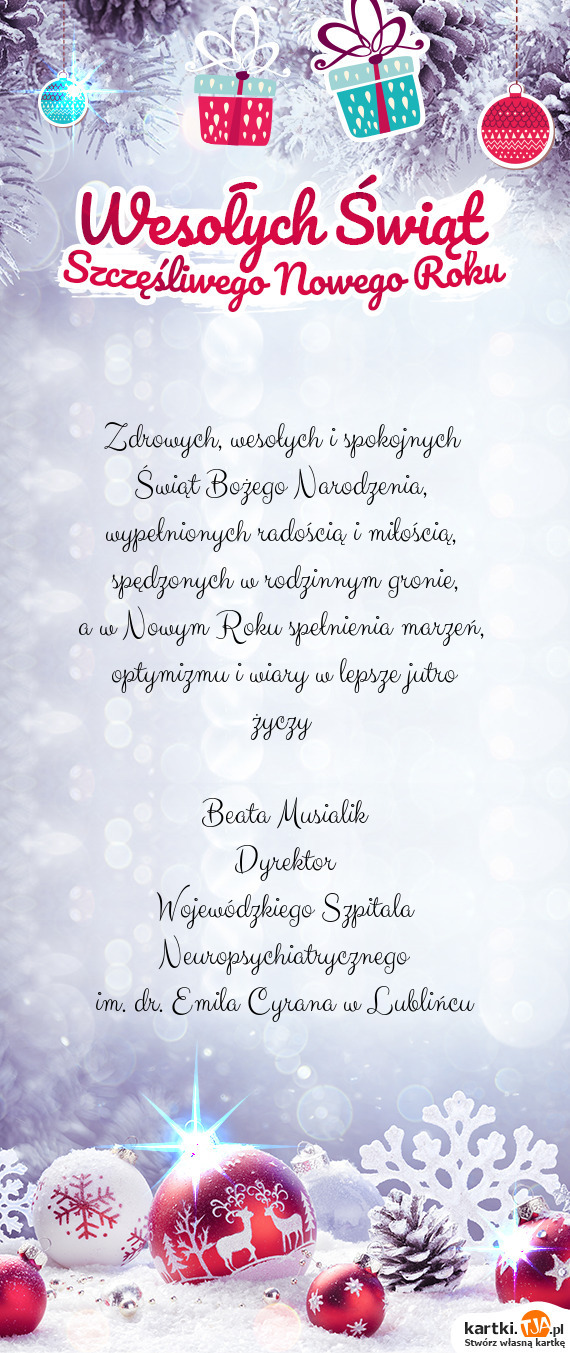 Wesołych Świąt
Szczęśliwego Nowego Roku
Zdrowych, wesołych i spokojnych
Świąt Bożego Narodzenia,
wypełnionych radością i miłością,
spędzonych w rodzinnym gronie,
a w Nowym Roku spełnienia marzeń,
optymizmu i wiary w lepsze jutro
życzy
Beata Musialik
Dyrektor
Wojewódzkiego Szpitala
Neuropsychiatrycznego
im. dr. Emila Cyrana w Lublińcu
kartki.TJA.pl
Stwórz własną kartkę